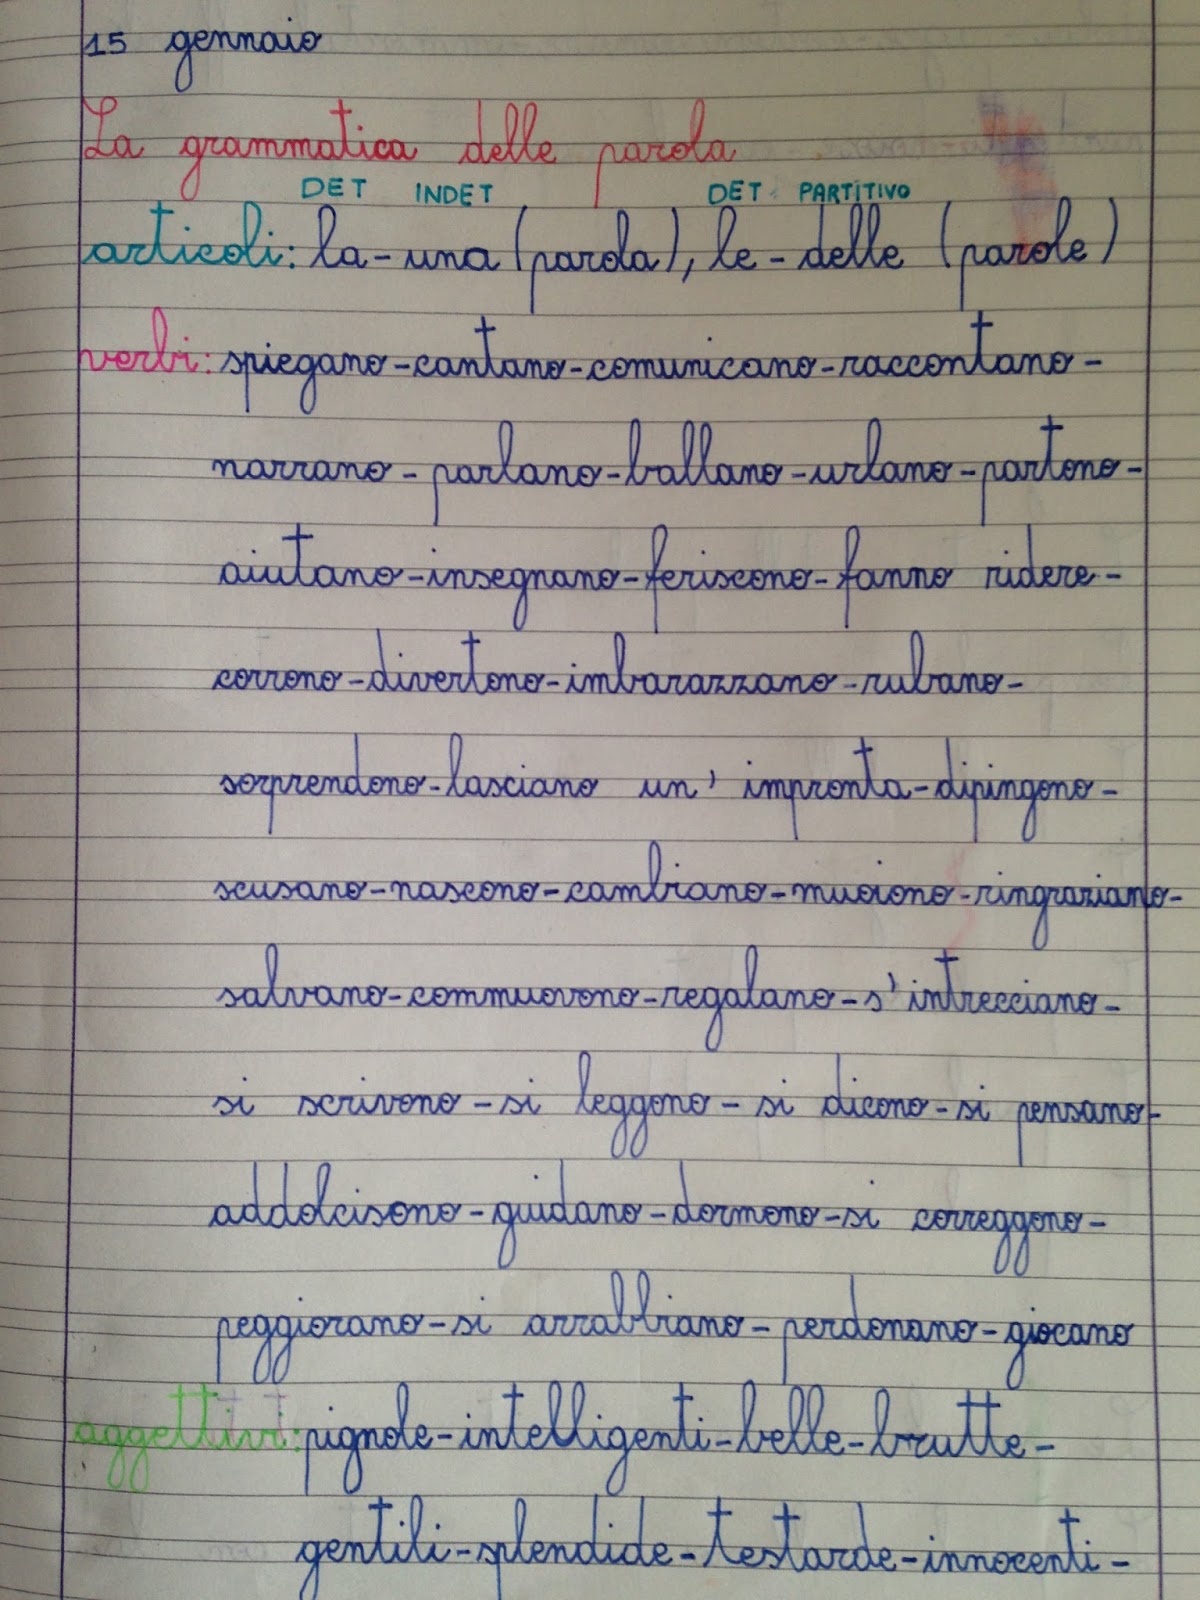 15 gennaio
La grammatica delle parola
DET INDET DET PARTITIVO
articoli: la-una (parola), le-delle (parole)
verbi: spiegano-cantano-comunicano-raccontano-
narrano-parlano-ballano-urlano-partono-
aiutano-insegnano-feriscono-fanno ridere-
corrono-divertono-imbarazzano-rubano-
sorprendono-lasciano un' impronta-dipingono-
scusano-nascono-cambiano-muoiono-ringraziano-
salvano-commuovono-regalano-s'intrecciano-
si scrivono-si leggono-si dicono-si pensano-
addolcisono-guidano-dormono-si correggono-
peggiorano-si arrabbiano-perdonano-giocano
aggettivi: pignole-intelligenti-belle-brutte-
gentili-splendide-testarde-innocenti-